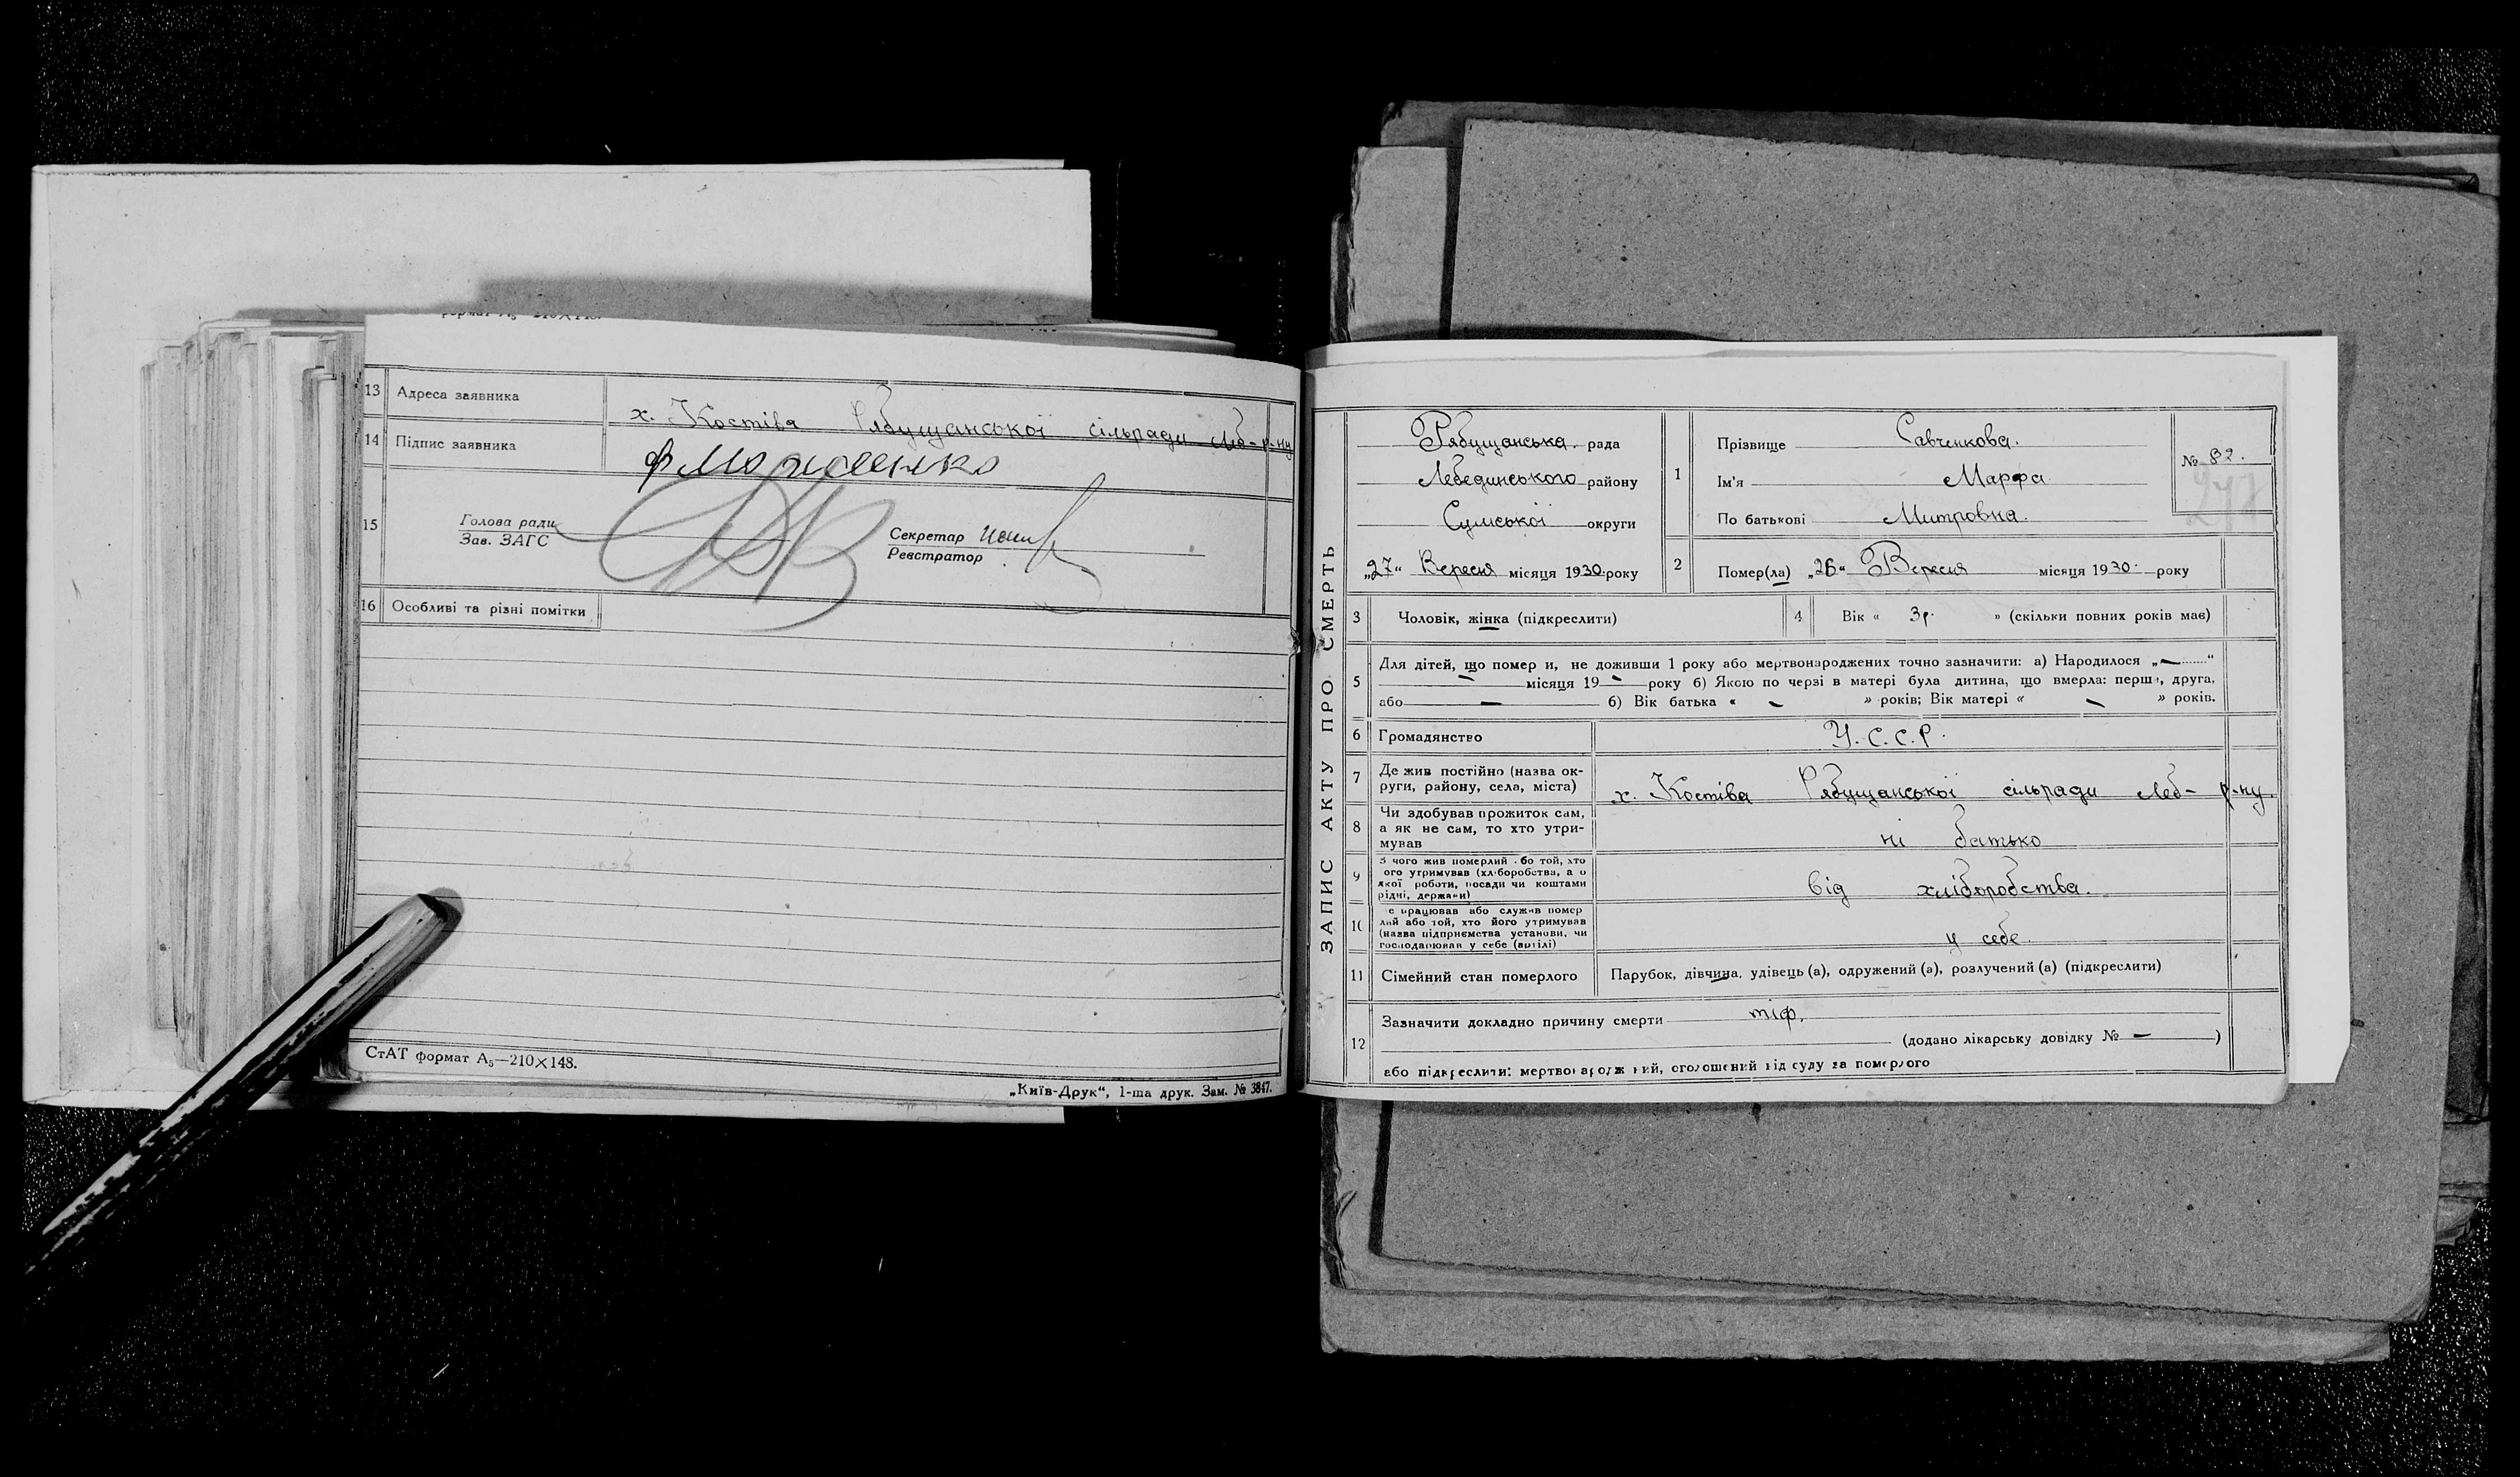 формат А₅—210×148.
13 Адреса заявника х. Костіва Рябущанської сільради Леб- р-ну
14 Підпис заявника Ф
15 Голова ради
Зав. ЗАГС
Секретар
Реєстратор
16 Особливі та різні помітки
СтАТ формат А₅—210×148.
„Київ-Друк“, 1-ша друк. Зам. № 3847.
ЗАПИС АКТУ ПРО СМЕРТЬ
Рябущанська рада
Лебединського району
Сумської округи
„27“ Вересня місяця 1930 року
1 Прізвище Савченкова.
Ім'я Марфа
По батькові Митровна.
№ 82.
2 Помер(ла) „26“ Вересня місяця 1930 року
3 Чоловік, жінка (підкреслити)
4 Вік « 3р. » (скільки повних років має)
5 Для дітей, що помер и, не доживши 1 року або мертвонароджених точно зазначити: а) Народилося „—“
— місяця 19 — року б) Якою по черзі в матері була дитина, що вмерла: перш , друга,
або — б) Вік батька « — » років; Вік матері « — » років.
6 Громадянство У.С.С.Р.
7 Де жив постійно (назва ок-
руги, району, села, міста) х. Костіва Рябущанської сільради Леб- р-ну.
8 Чи здобував прожиток сам,
а як не сам, то хто утри-
мував ні батько
9 З чого жив померлий або той, хто
ого утримував (хліборобства, а о
якої роботи, посади чи коштами
рідні, держави) від хліборобства.
10 е працював або служив помер
лий або той, хто його утримував
(назва підприємства установи, чи
господарював у себе (артілі) у себе.
11 Сімейний стан померлого Парубок, дівчина, удівець (а), одружений (а), розлучений (а) (підкреслити)
12 Зазначити докладно причину смерти тіф.
(додано лікарську довідку № — )
або підкреслити: мертвонароджений, оголошений від суду за померлого